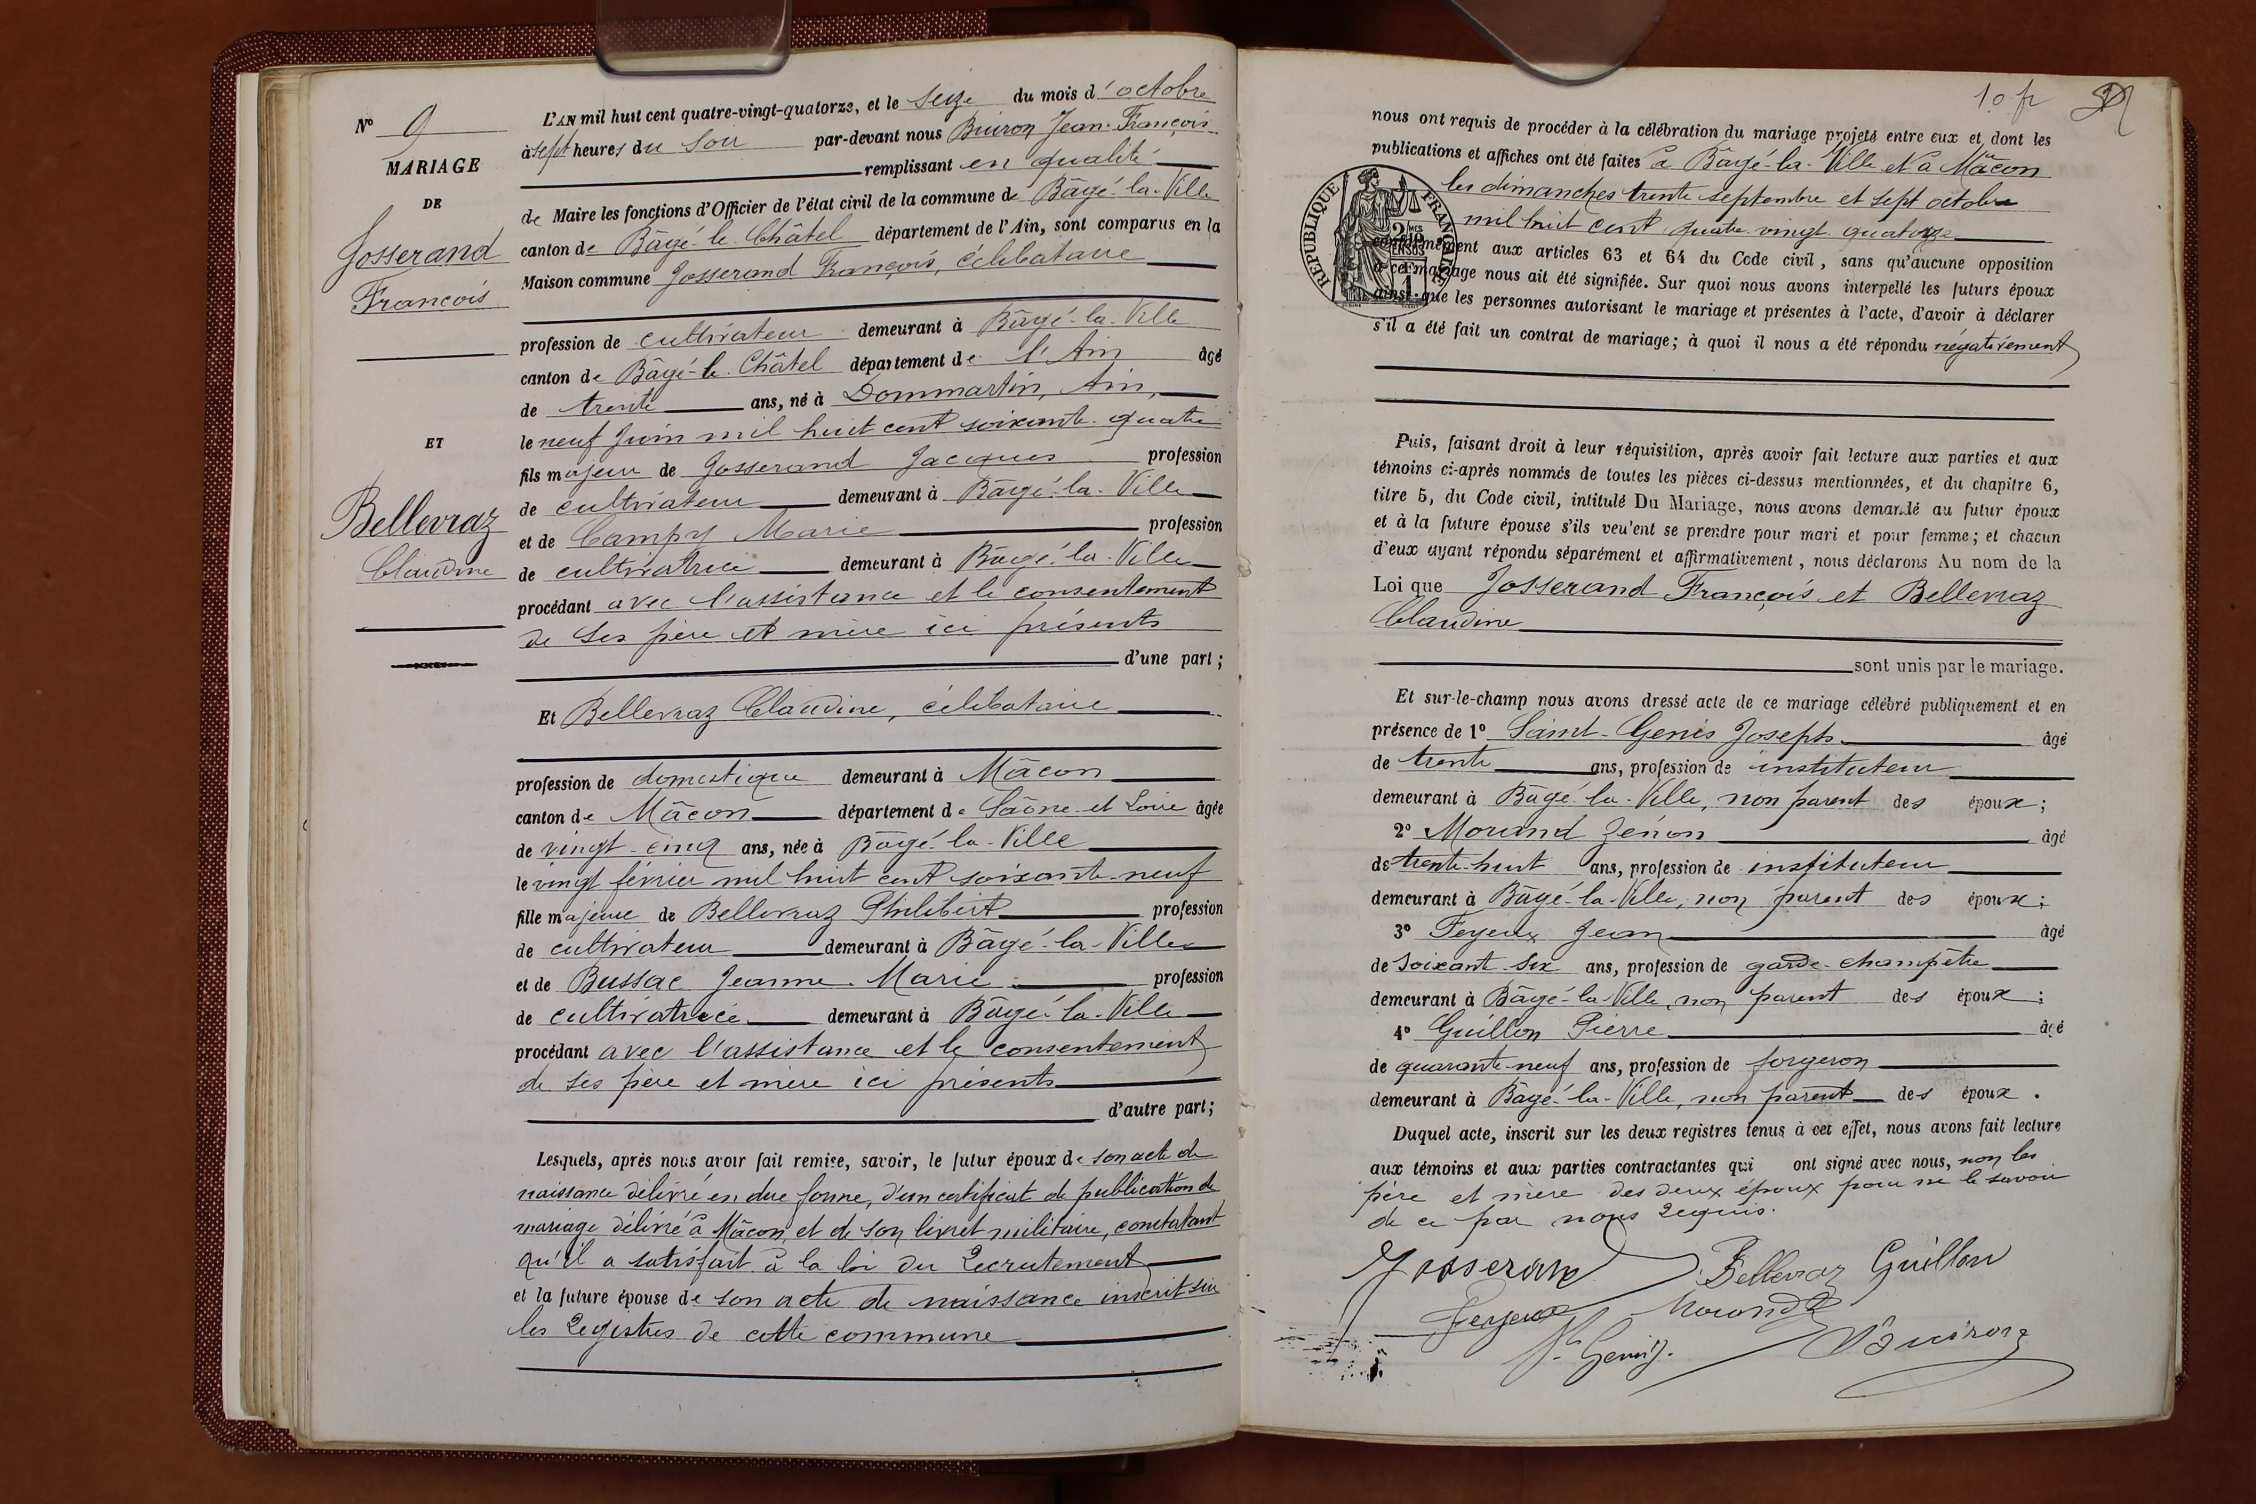 N° 9
MARIAGE
DE
Josserand
François
ET
Bellevraz
Claudine
L'AN mil huit cent quatre-vingt-quatorze, et le seize du mois d'octobre
à sept heures du soir par-devant nous Buiron Jean-François
remplissant en qualité
de Maire les fonctions d'Officier de l'état civil de la commune de Bâgé-la-Ville
canton de Bâgé-le-Châtel département de l'Ain, sont comparus en la
Maison commune Josserand François, célibataire
profession de cultivateur demeurant à Bâgé-la-Ville
canton de Bâgé-le-Châtel département de l'Ain âgé
de trente ans, né à Dommartin, Ain,
le neuf juin mil huit cent soixante-quatre
fils majeur de Josserand Jacques profession
de cultivateur demeurant à Bâgé-la-Ville
et de Campy Marie profession
de cultivatrice demeurant à Bâgé-la-Ville
procédant avec l'assistance et le consentement
de ses père et mère ici présents
d'une part;
Et Bellevraz Claudine, célibataire
profession de domestique demeurant à Mâcon
canton de Mâcon département de Saône-et-Loire âgée
de vingt-cinq ans, née à Bâgé-la-Ville
le vingt février mil huit cent soixante-neuf
fille majeure de Bellevraz Philibert profession
de cultivateur demeurant à Bâgé-la-Ville
et de Bussac Jeanne-Marie profession
de cultivatrice demeurant à Bâgé-la-Ville
procédant avec l'assistance et le consentement
de ses père et mère ici présents
d'autre part;
Lesquels, après nous avoir fait remise, savoir, le futur époux de son acte de
naissance délivré en due forme, d'un certificat de publication de
mariage délivré à Mâcon, et de son livret militaire, constatant
qu'il a satisfait à la loi du recrutement
et la future épouse de son acte de naissance inscrit sur
les registres de cette commune
10 fr
nous ont requis de procéder à la célébration du mariage projeté entre eux et dont les
publications et affiches ont été faites à Bâgé-la-Ville et à Mâcon
les dimanches trente septembre et sept octobre
mil huit cent quatre-vingt-quatorze
conformément aux articles 63 et 64 du Code civil, sans qu'aucune opposition
à ce mariage nous ait été signifiée. Sur quoi nous avons interpellé les futurs époux
ainsi que les personnes autorisant le mariage et présentes à l'acte, d'avoir à déclarer
s'il a été fait un contrat de mariage; à quoi il nous a été répondu négativement
RÉPUBLIQUE FRANÇAISE
Puis, faisant droit à leur réquisition, après avoir fait lecture aux parties et aux
témoins ci-après nommés de toutes les pièces ci-dessus mentionnées, et du chapitre 6,
titre 5, du Code civil, intitulé Du Mariage, nous avons demandé au futur époux
et à la future épouse s'ils veulent se prendre pour mari et pour femme; et chacun
d'eux ayant répondu séparément et affirmativement, nous déclarons Au nom de la
Loi que Josserand François et Bellevraz
Claudine
sont unis par le mariage.
Et sur-le-champ nous avons dressé acte de ce mariage célébré publiquement et en
présence de 1° Saint-Genis Joseph âgé
de trente ans, profession de instituteur
demeurant à Bâgé-la-Ville, non parent des époux;
2° Morand Zénon âgé
de trente-huit ans, profession de instituteur
demeurant à Bâgé-la-Ville, non parent des époux;
3° Feyeux Jean âgé
de soixant-six ans, profession de garde-champêtre
demeurant à Bâgé-la-Ville, non parent des époux;
4° Guillon Pierre âgé
de quarante-neuf ans, profession de forgeron
demeurant à Bâgé-la-Ville, non parent des époux.
Duquel acte, inscrit sur les deux registres tenus à cet effet, nous avons fait lecture
aux témoins et aux parties contractantes qui ont signé avec nous, non les
père et mère des deux époux pour ne le savoir
de ce par nous requis.
Josserand Bellevraz Guillon
Feyeux Morand
St Genis Buiron